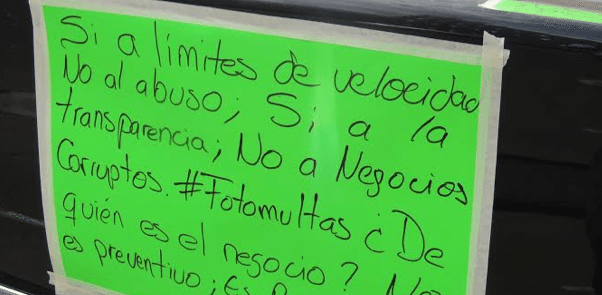 Si a limites de velocidad
No al abuso; Si a la
transparencia; No a Negocios
Corruptos. #Fotomultas ¿De
quién es el negocio? No
es preventivo; Es